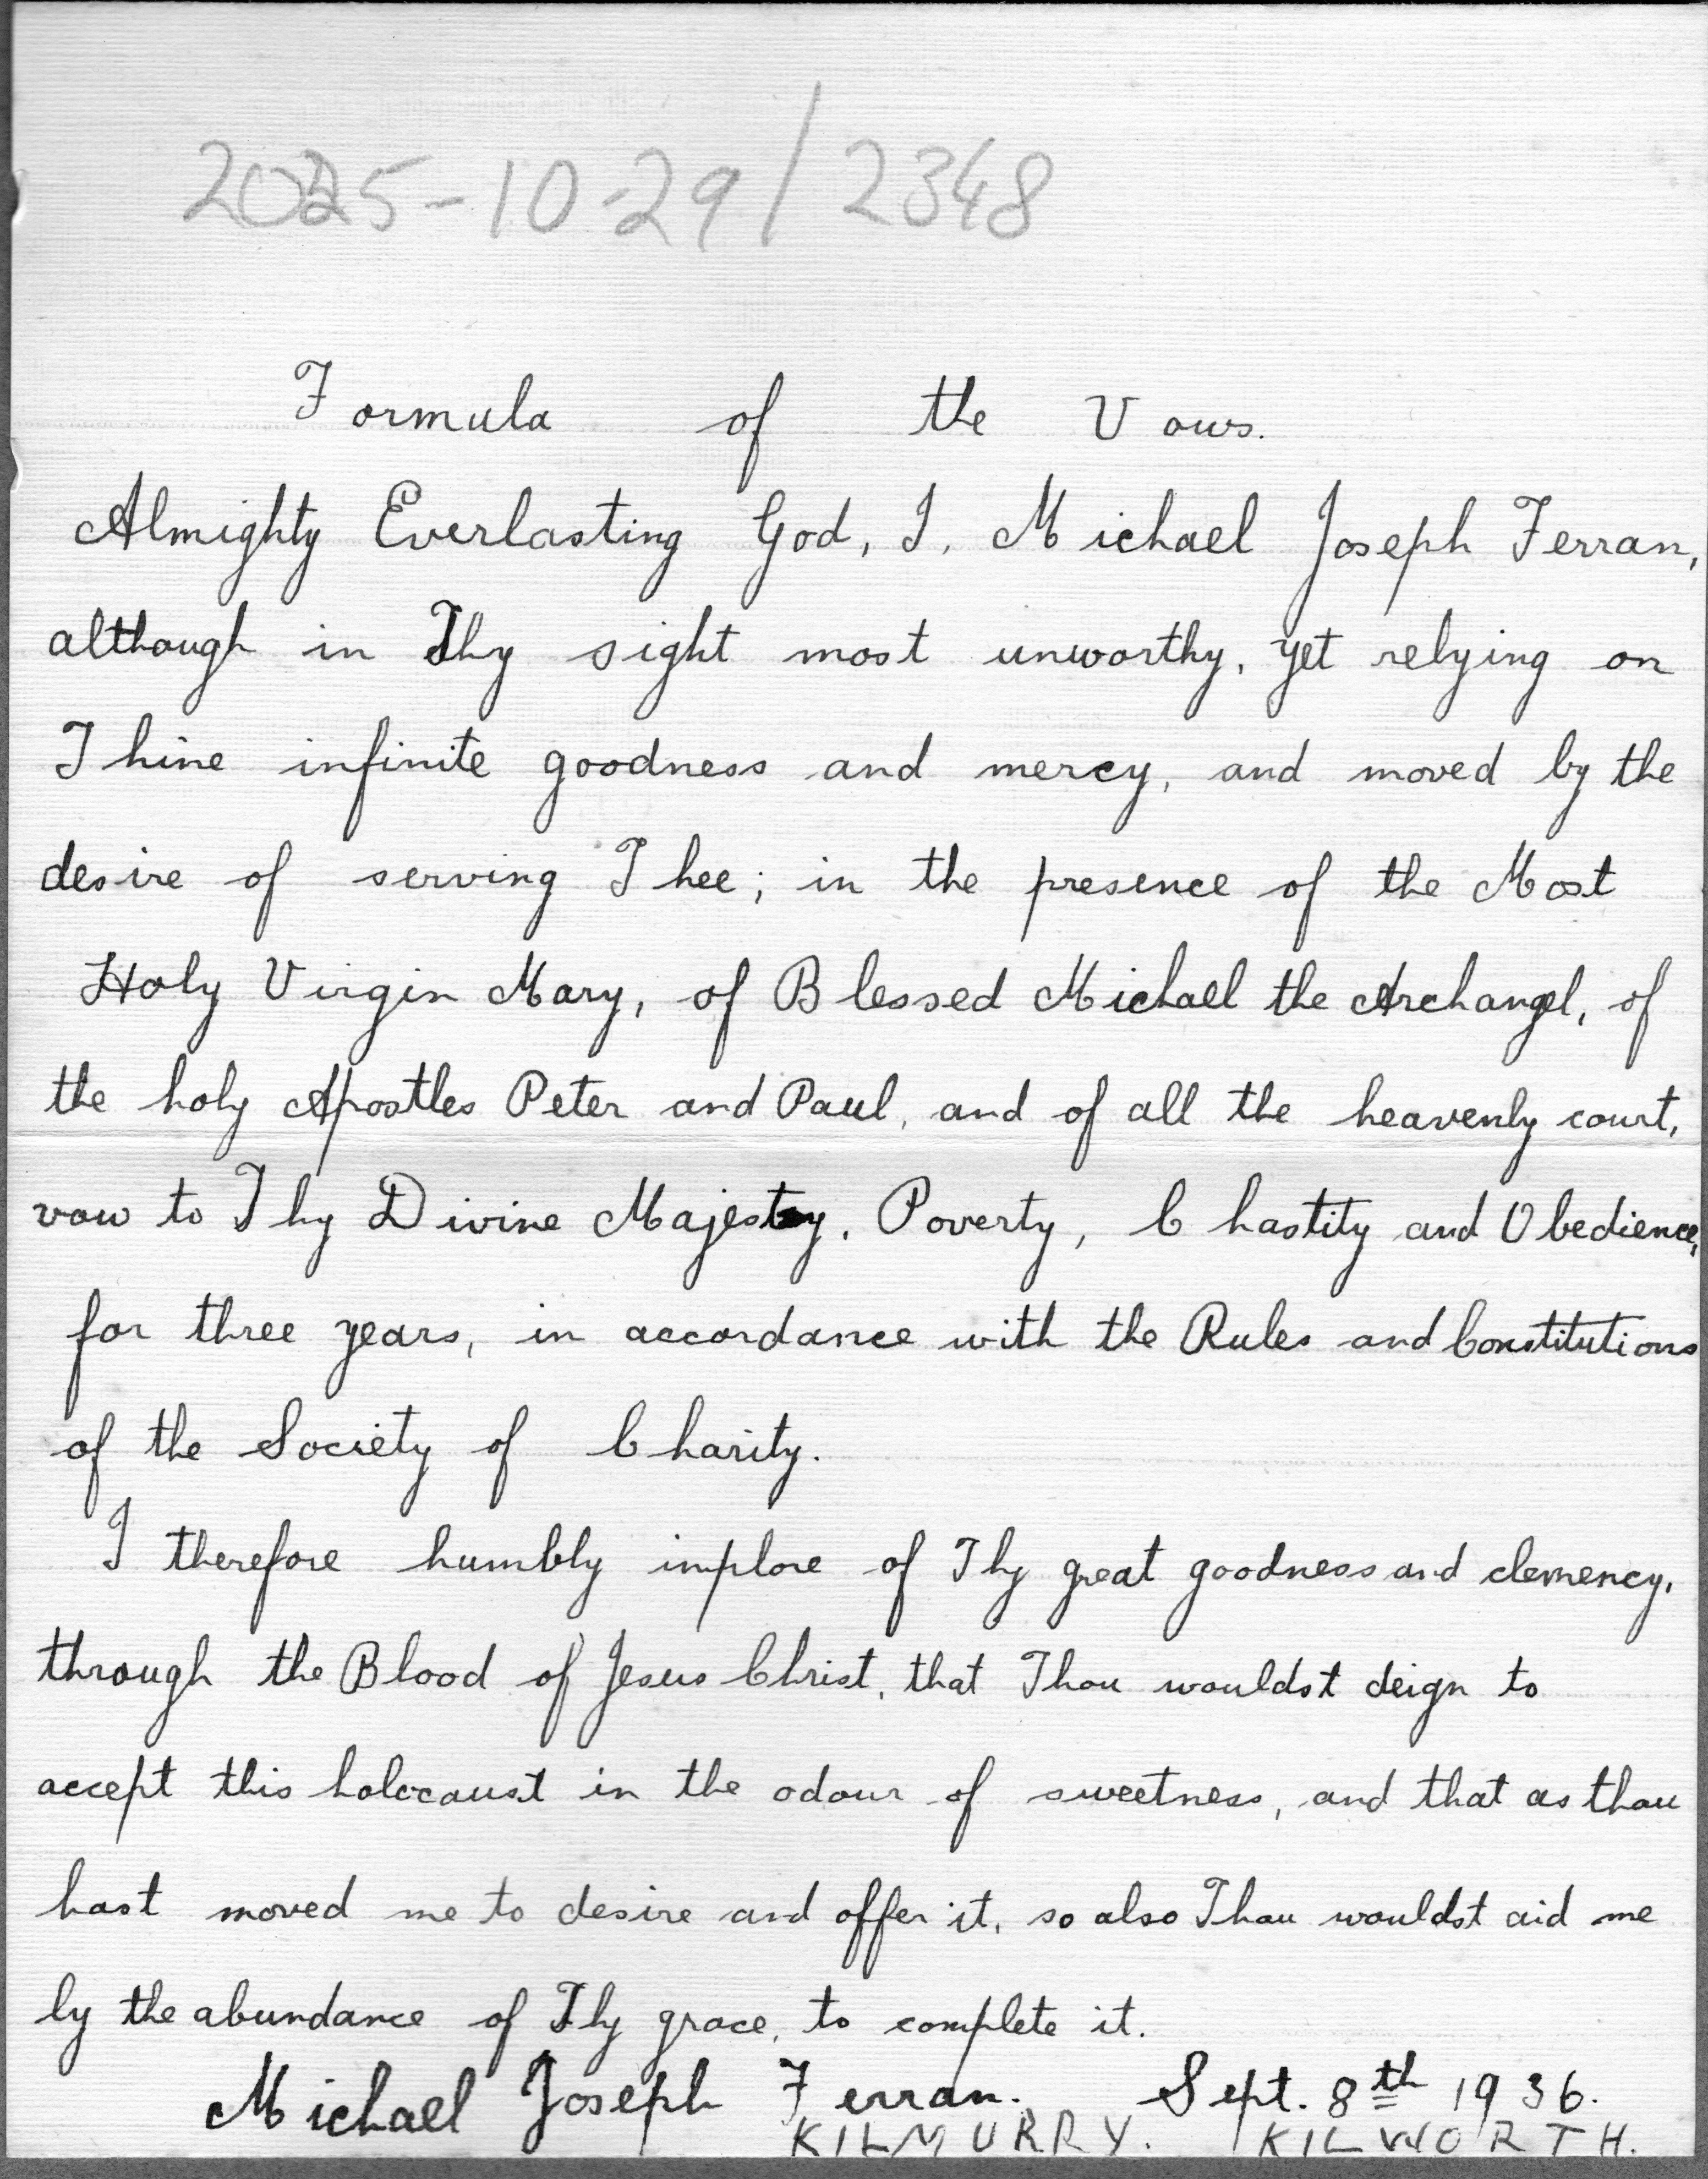 2025-10-29/2348
Formula of the Vows.
Almighty Everlasting God, I, Michael Joseph Ferran,
although in Thy sight most unworthy, yet relying on
Thine infinite goodness and mercy, and moved by the
desire of serving Thee; in the presence of the Most
Holy Virgin Mary, of Blessed Michael the Archangel, of
the holy Apostles Peter and Paul, and of all the heavenly court,
vow to Thy Divine Majesty, Poverty, Chastity and Obedience,
for three years, in accordance with the Rules and Constitutions
of the Society of Charity.
I therefore humbly implore of Thy great goodness and clemency,
through the Blood of Jesus Christ, that Thou wouldst deign to
accept this holocaust in the odour of sweetness, and that as thou
hast moved me to desire and offer it, so also Thou wouldst aid me
by the abundance of Thy grace, to complete it.
Michael Joseph Ferran. Sept. 8th 1936.
KILMURRY. KILWORTH.